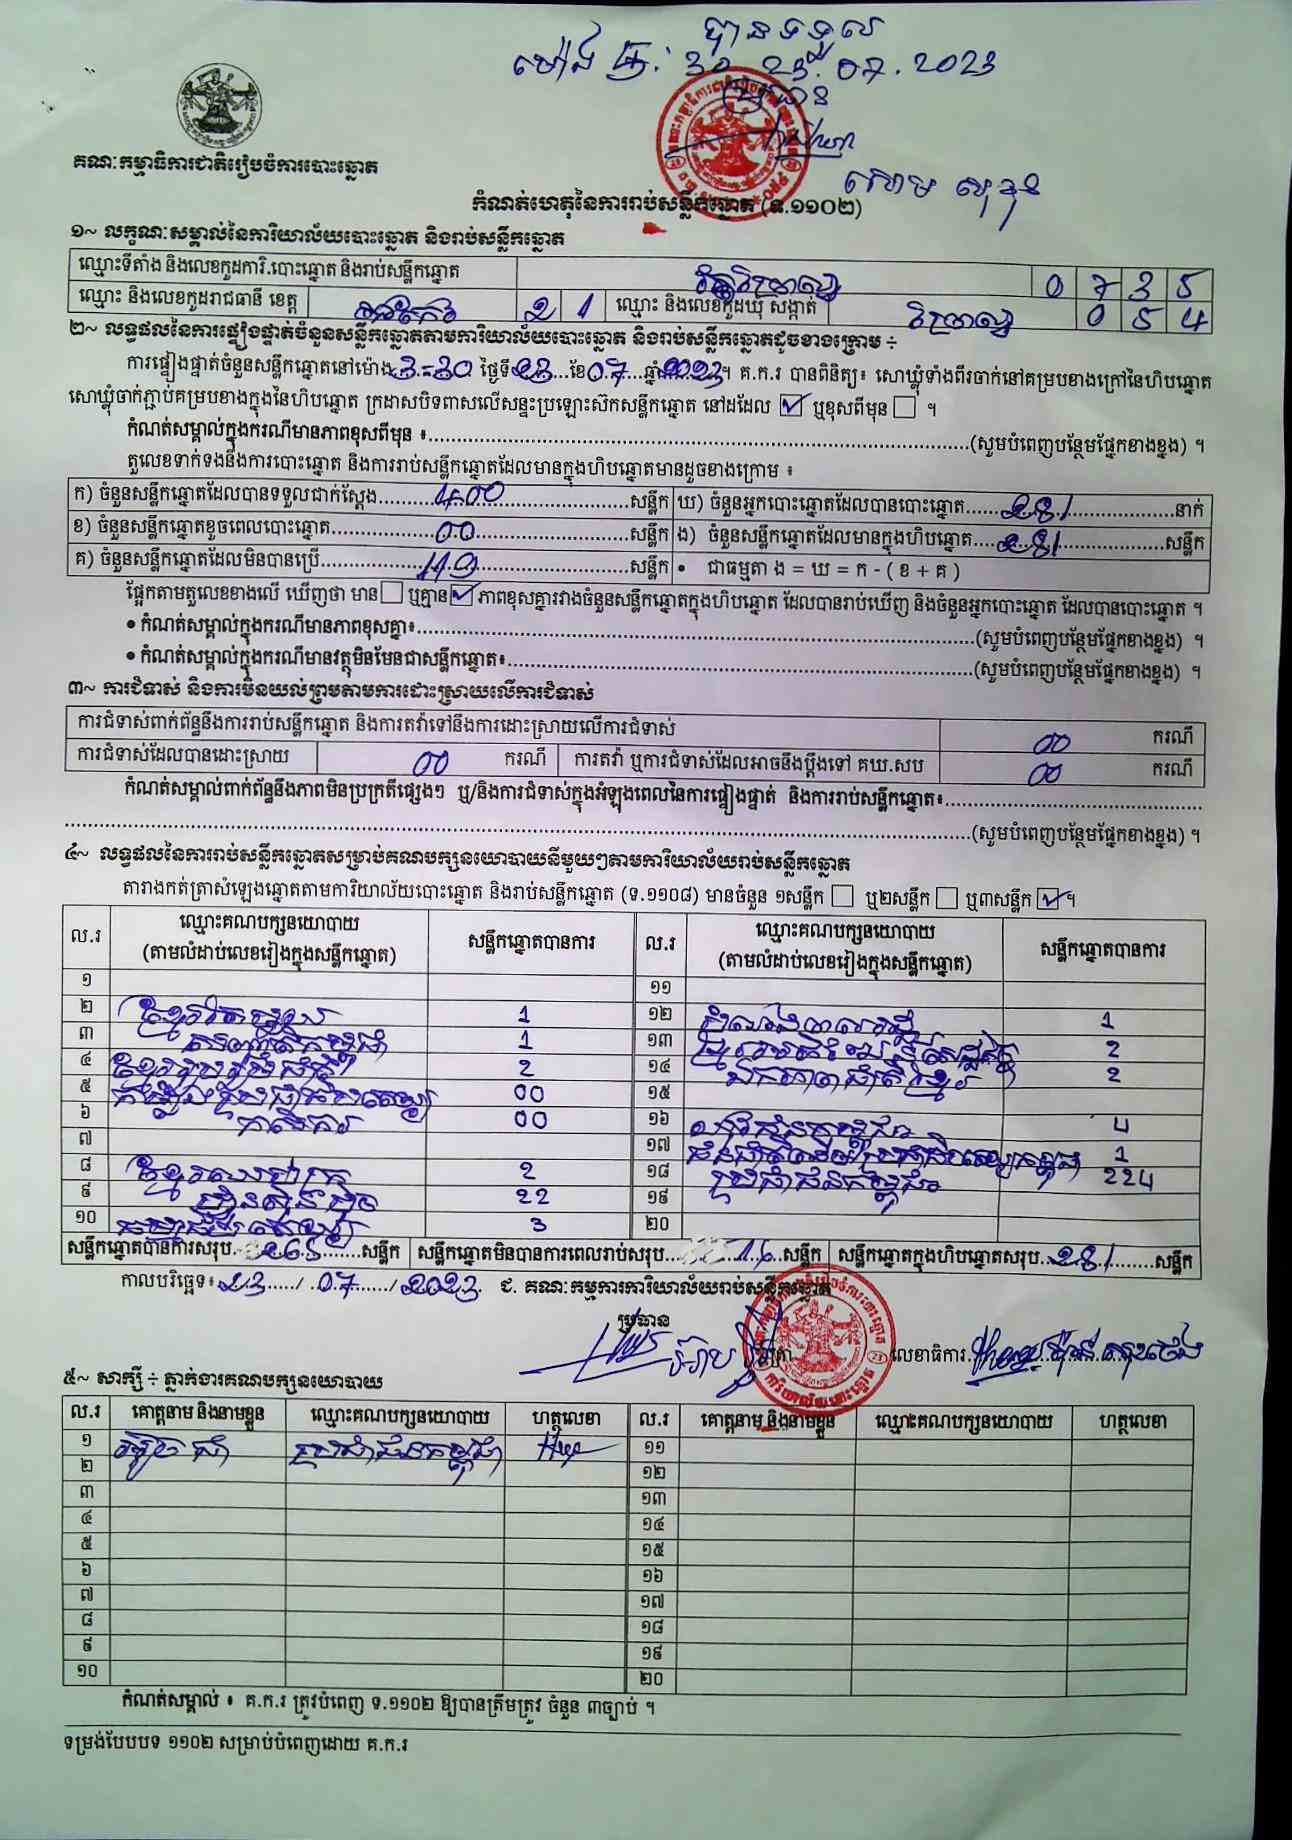 បានទទួល
ម៉ោង 23.07.2023
ប្រធាន
គណៈកម្មាធិការជាតិរៀបចំការបោះឆ្នោត
កំណត់ហេតុនៃការរាប់សន្លឹកឆ្នោត (ទ.១១០២)
១~ លក្ខណៈសម្គាល់នៃការិយាល័យបោះឆ្នោត និងរាប់សន្លឹកឆ្នោត
ឈ្មោះទីតាំង និងលេខកូដការិ.បោះឆ្នោត និងរាប់សន្លឹកឆ្នោត 0 7 3 5
ឈ្មោះ និងលេខកូដរាជធានី ខេត្ត តាកែវ 2 1 ឈ្មោះ និងលេខកូដឃុំ សង្កាត់ 0 5 4
២~ លទ្ធផលនៃការផ្ទៀងផ្ទាត់ចំនួនសន្លឹកឆ្នោតតាមការិយាល័យបោះឆ្នោត និងរាប់សន្លឹកឆ្នោតដូចខាងក្រោម ÷
ការផ្ទៀងផ្ទាត់ចំនួនសន្លឹកឆ្នោតនៅម៉ោង 3-30 ថ្ងៃទី 23 ខែ 07 ឆ្នាំ 2023 ។ គ.ក.រ បានពិនិត្យ៖ សោឃ្លុំទាំងពីរចាក់នៅគម្របខាងក្រៅនៃហិបឆ្នោត
សោឃ្លុំចាក់ភ្ជាប់គម្របខាងក្នុងនៃហិបឆ្នោត ក្រដាសបិទពាសលើសន្ទះប្រឡោះស៊កសន្លឹកឆ្នោត នៅដដែល ☑ ឬខុសពីមុន ☐ ។
កំណត់សម្គាល់ក្នុងករណីមានភាពខុសពីមុន ៖ (សូមបំពេញបន្ថែមផ្នែកខាងខ្នង) ។
តួលេខទាក់ទងនឹងការបោះឆ្នោត និងការរាប់សន្លឹកឆ្នោតដែលមានក្នុងហិបឆ្នោតមានដូចខាងក្រោម ៖
ក) ចំនួនសន្លឹកឆ្នោតដែលបានទទួលជាក់ស្តែង 400 សន្លឹក ឃ) ចំនួនអ្នកបោះឆ្នោតដែលបានបោះឆ្នោត 281 នាក់
ខ) ចំនួនសន្លឹកឆ្នោតខូចពេលបោះឆ្នោត 00 សន្លឹក ង) ចំនួនសន្លឹកឆ្នោតដែលមានក្នុងហិបឆ្នោត 281 សន្លឹក
គ) ចំនួនសន្លឹកឆ្នោតដែលមិនបានប្រើ 119 សន្លឹក • ជាធម្មតា ង = ឃ = ក - ( ខ + គ )
ផ្អែកតាមតួលេខខាងលើ ឃើញថា មាន ☐ ឬគ្មាន ☑ ភាពខុសគ្នារវាងចំនួនសន្លឹកឆ្នោតក្នុងហិបឆ្នោត ដែលបានរាប់ឃើញ និងចំនួនអ្នកបោះឆ្នោត ដែលបានបោះឆ្នោត ។
• កំណត់សម្គាល់ក្នុងករណីមានភាពខុសគ្នា៖ (សូមបំពេញបន្ថែមផ្នែកខាងខ្នង) ។
• កំណត់សម្គាល់ក្នុងករណីមានវត្ថុមិនមែនជាសន្លឹកឆ្នោត៖ (សូមបំពេញបន្ថែមផ្នែកខាងខ្នង) ។
៣~ ការជំទាស់ និងការមិនយល់ព្រមតាមការដោះស្រាយលើការជំទាស់
ការជំទាស់ពាក់ព័ន្ធនឹងការរាប់សន្លឹកឆ្នោត និងការតវ៉ាទៅនឹងការដោះស្រាយលើការជំទាស់ 00 ករណី
ការជំទាស់ដែលបានដោះស្រាយ 00 ករណី ការតវ៉ា ឬការជំទាស់ដែលអាចនឹងប្តឹងទៅ គឃ.សប 00 ករណី
កំណត់សម្គាល់ពាក់ព័ន្ធនឹងភាពមិនប្រក្រតីផ្សេងៗ ឬ/និងការជំទាស់ក្នុងអំឡុងពេលនៃការផ្ទៀងផ្ទាត់ និងការរាប់សន្លឹកឆ្នោត៖
(សូមបំពេញបន្ថែមផ្នែកខាងខ្នង) ។
៤~ លទ្ធផលនៃការរាប់សន្លឹកឆ្នោតសម្រាប់គណបក្សនយោបាយនីមួយៗតាមការិយាល័យរាប់សន្លឹកឆ្នោត
តារាងកត់ត្រាសំឡេងឆ្នោតតាមការិយាល័យបោះឆ្នោត និងរាប់សន្លឹកឆ្នោត (ទ.១១០៨) មានចំនួន ១សន្លឹក ☐ ឬ២សន្លឹក ☐ ឬ៣សន្លឹក ☑ ។
ល.រ ឈ្មោះគណបក្សនយោបាយ (តាមលំដាប់លេខរៀងក្នុងសន្លឹកឆ្នោត) សន្លឹកឆ្នោតបានការ ល.រ ឈ្មោះគណបក្សនយោបាយ (តាមលំដាប់លេខរៀងក្នុងសន្លឹកឆ្នោត) សន្លឹកឆ្នោតបានការ
១ ១១
២ 1 ១២ 1
៣ 1 ១៣ 2
៤ 2 ១៤ ឯកភាពជាតិខ្មែរ 2
៥ 00 ១៥
៦ កសិករ 00 ១៦ 4
៧ ១៧ 1
៨ 2 ១៨ ប្រជាជនកម្ពុជា 224
៩ ហ្វ៊ុនស៊ិនប៉ិច 22 ១៩
១០ 3 ២០
សន្លឹកឆ្នោតបានការសរុប 265 សន្លឹក សន្លឹកឆ្នោតមិនបានការពេលរាប់សរុប 16 សន្លឹក សន្លឹកឆ្នោតក្នុងហិបឆ្នោតសរុប 281 សន្លឹក
កាលបរិច្ឆេទ៖ 23 / 07 / 2023 ជ. គណៈកម្មការការិយាល័យរាប់សន្លឹកឆ្នោត
ប្រធាន
លេខាធិការ
៥~ សាក្សី ÷ ភ្នាក់ងារគណបក្សនយោបាយ
ល.រ គោត្តនាម និងនាមខ្លួន ឈ្មោះគណបក្សនយោបាយ ហត្ថលេខា ល.រ គោត្តនាម និងនាមខ្លួន ឈ្មោះគណបក្សនយោបាយ ហត្ថលេខា
១ ប្រជាជនកម្ពុជា ១១
២ ១២
៣ ១៣
៤ ១៤
៥ ១៥
៦ ១៦
៧ ១៧
៨ ១៨
៩ ១៩
១០ ២០
កំណត់សម្គាល់ ៖ គ.ក.រ ត្រូវបំពេញ ទ.១១០២ ឱ្យបានត្រឹមត្រូវ ចំនួន ៣ច្បាប់ ។
ទម្រង់បែបបទ ១១០២ សម្រាប់បំពេញដោយ គ.ក.រ